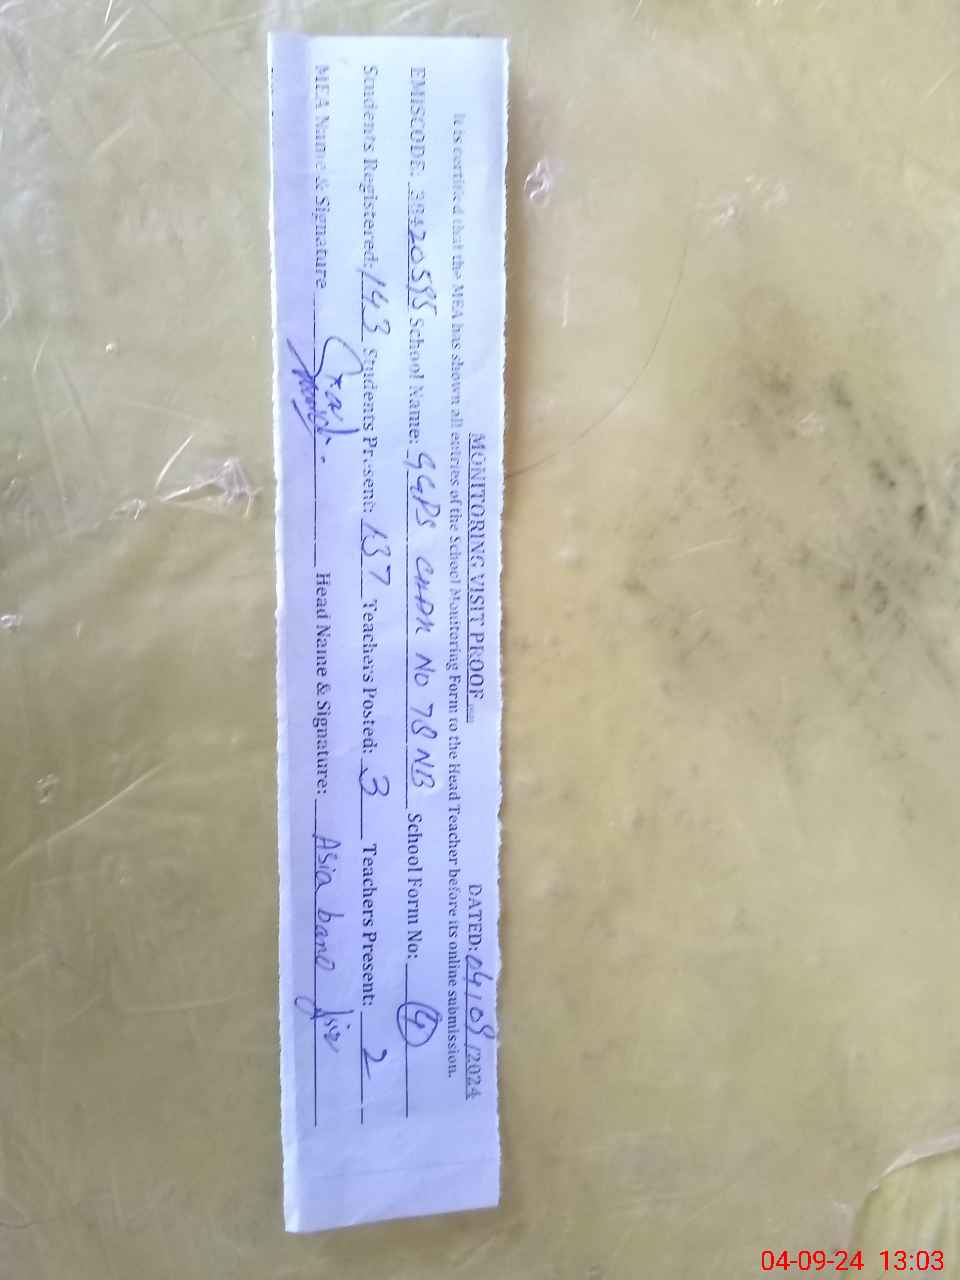 MONITORING VISIT PROOF DATED: 04/09/2024
It is certified that the MEA has shown all entries of the School Monitoring Form to the Head Teacher before its online submission.
EMISCODE: 38420595 School Name: GGPS CHAK NO 78 NB School Form No: 4
Students Registered: 143 Students Present: 137 Teachers Posted: 3 Teachers Present: 2
MEA Name & Signature Head Name & Signature: Asia bano
04-09-24 13:03